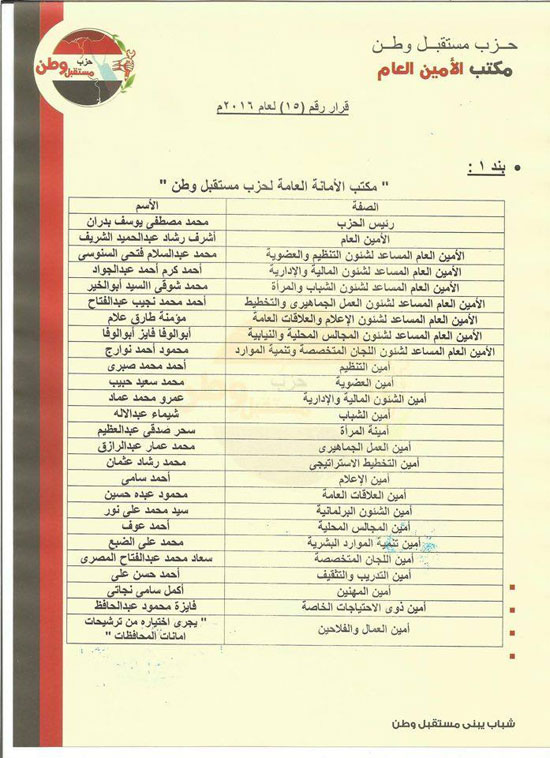 حزب مستقبل وطن
مكتب الأمين العام
حزب
مستقبل وطن
قرار رقم (١٥) لعام ٢٠١٦م
• بند ١ :
" مكتب الأمانة العامة لحزب مستقبل وطن "
الصفة الأسم
رئيس الحزب محمد مصطفى يوسف بدران
الأمين العام أشرف رشاد عبدالحميد الشريف
الأمين العام المساعد لشئون التنظيم والعضوية محمد عبدالسلام فتحى السنوسى
الأمين العام المساعد لشئون المالية والإدارية أحمد كرم أحمد عبدالجواد
الأمين العام المساعد لشئون الشباب والمرأة محمد شوقى االسيد أبوالخير
الأمين العام المساعد لشئون العمل الجماهيرى والتخطيط أحمد محمد نجيب عبدالفتاح
الأمين العام المساعد لشئون الإعلام والعلاقات العامة مؤمنة طارق علام
الأمين العام المساعد لشئون المجالس المحلية والنيابية أبوالوفا فايز أبوالوفا
الأمين العام المساعد لشئون اللجان المتخصصة وتنمية الموارد محمود أحمد نوارج
أمين التنظيم أحمد محمد صبرى
أمين العضوية محمد سعيد حبيب
أمين الشئون المالية والإدارية عمرو محمد عماد
أمين الشباب شيماء عبدالاله
أمينة المرأة سحر صدقى عبدالعظيم
أمين العمل الجماهيرى محمد عمار عبدالرازق
أمين التخطيط الاستراتيجى محمد رشاد عثمان
أمين الإعلام أحمد سامى
أمين العلاقات العامة محمود عبده حسين
أمين الشئون البرلمانية سيد محمد على نور
أمين المجالس المحلية أحمد عوف
أمين تنمية الموارد البشرية محمد على الضبع
أمين اللجان المتخصصة سعاد محمد عبدالفتاح المصرى
أمين التدريب والتثقيف أحمد حسن على
أمين المهنين أكمل سامى نجاتى
أمين ذوى الاحتياجات الخاصة فايزة محمود عبدالحافظ
أمين العمال والفلاحين " يجرى اختياره من ترشيحات
امانات المحافظات "
شباب يبنى مستقبل وطن